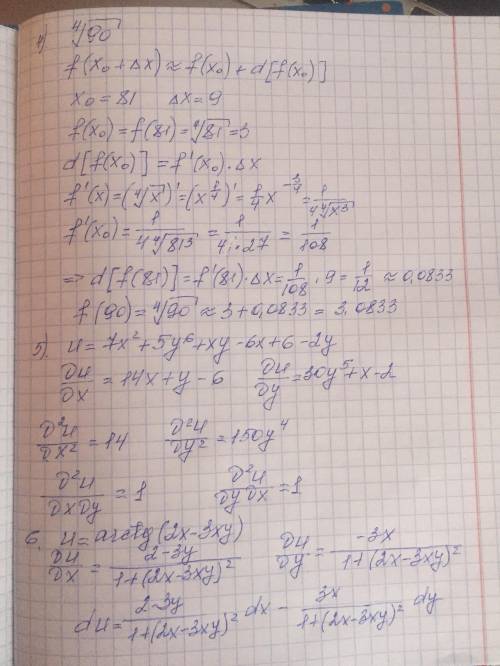 4) ∜90
f(x₀+Δx)≈f(x₀)+d[f(x₀)]
x₀=81 Δx=9
f(x₀)=f(81)=∜81=3
d[f(x₀)]=f'(x₀)·Δx
f'(x)=(∜x)'=(x^(1/4))'=1/4 x^(-3/4)=1/(4∜x³)
f'(x₀)=1/(4∜81³)=1/(4·27)=1/108
=> d[f(81)]=f'(81)·Δx=1/108·9=1/12≈0,0833
f(90)=∜90≈3+0,0833=3,0833
5) u=7x²+5y⁶+xy-6x+6-2y
∂u/∂x=14x+y-6 ∂u/∂y=30y⁵+x-2
∂²u/∂x²=14 ∂²u/∂y²=150y⁴
∂²u/∂x∂y=1 ∂²u/∂y∂x=1
6. u=arctg(2x-3xy)
∂u/∂x=(2-3y)/(1+(2x-3xy)²) ∂u/∂y=(-3x)/(1+(2x-3xy)²)
du=(2-3y)/(1+(2x-3xy)²) dx - 3x/(1+(2x-3xy)²) dy